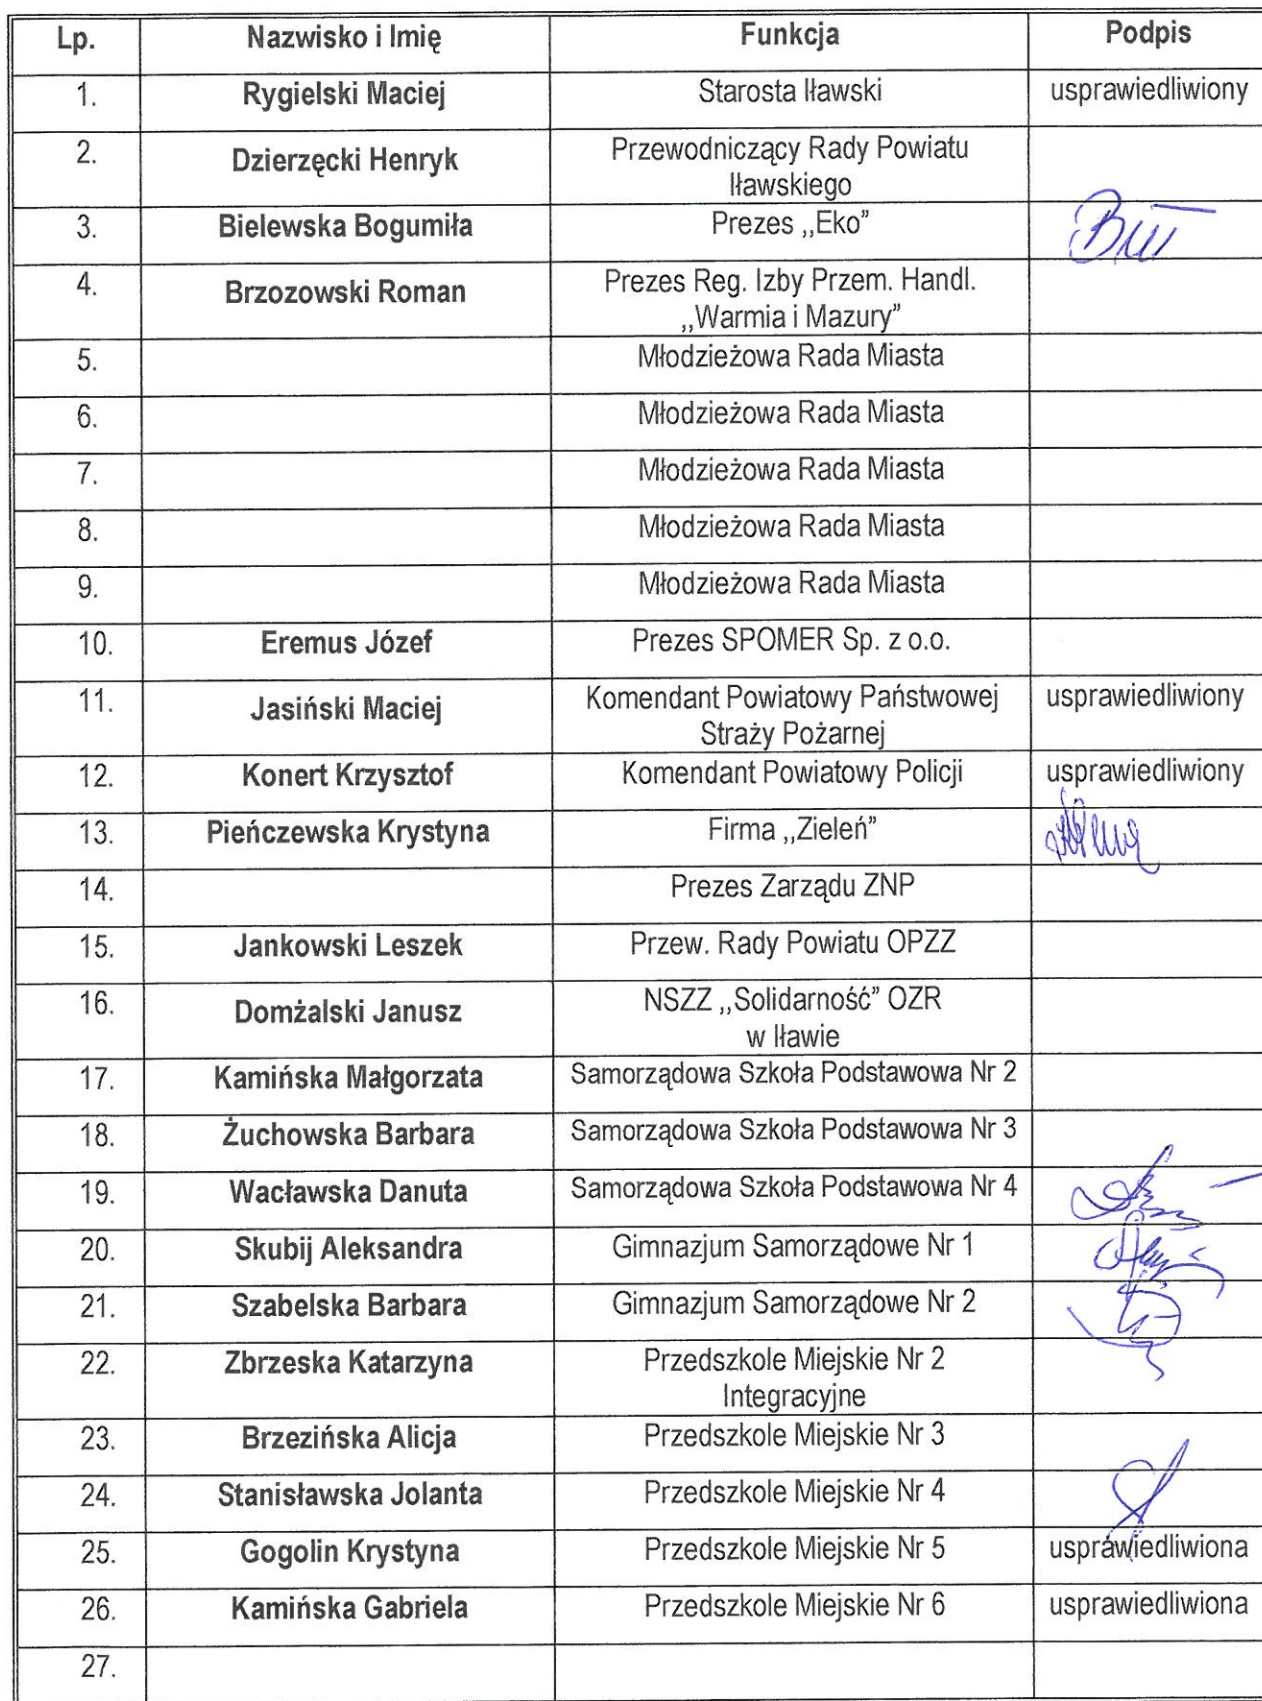 Lp. Nazwisko i Imię Funkcja Podpis
1. Rygielski Maciej Starosta Iławski usprawiedliwiony
2. Dzierzęcki Henryk Przewodniczący Rady Powiatu
Iławskiego
3. Bielewska Bogumiła Prezes ,,Eko”
4. Brzozowski Roman Prezes Reg. Izby Przem. Handl.
,,Warmia i Mazury”
5. Młodzieżowa Rada Miasta
6. Młodzieżowa Rada Miasta
7. Młodzieżowa Rada Miasta
8. Młodzieżowa Rada Miasta
9. Młodzieżowa Rada Miasta
10. Eremus Józef Prezes SPOMER Sp. z o.o.
11. Jasiński Maciej Komendant Powiatowy Państwowej usprawiedliwiony
Straży Pożarnej
12. Konert Krzysztof Komendant Powiatowy Policji usprawiedliwiony
13. Pieńczewska Krystyna Firma ,,Zieleń”
14. Prezes Zarządu ZNP
15. Jankowski Leszek Przew. Rady Powiatu OPZZ
16. Domżalski Janusz NSZZ ,,Solidarność” OZR
w Iławie
17. Kamińska Małgorzata Samorządowa Szkoła Podstawowa Nr 2
18. Żuchowska Barbara Samorządowa Szkoła Podstawowa Nr 3
19. Wacławska Danuta Samorządowa Szkoła Podstawowa Nr 4
20. Skubij Aleksandra Gimnazjum Samorządowe Nr 1
21. Szabelska Barbara Gimnazjum Samorządowe Nr 2
22. Zbrzeska Katarzyna Przedszkole Miejskie Nr 2
Integracyjne
23. Brzezińska Alicja Przedszkole Miejskie Nr 3
24. Stanisławska Jolanta Przedszkole Miejskie Nr 4
25. Gogolin Krystyna Przedszkole Miejskie Nr 5 usprawiedliwiona
26. Kamińska Gabriela Przedszkole Miejskie Nr 6 usprawiedliwiona
27.